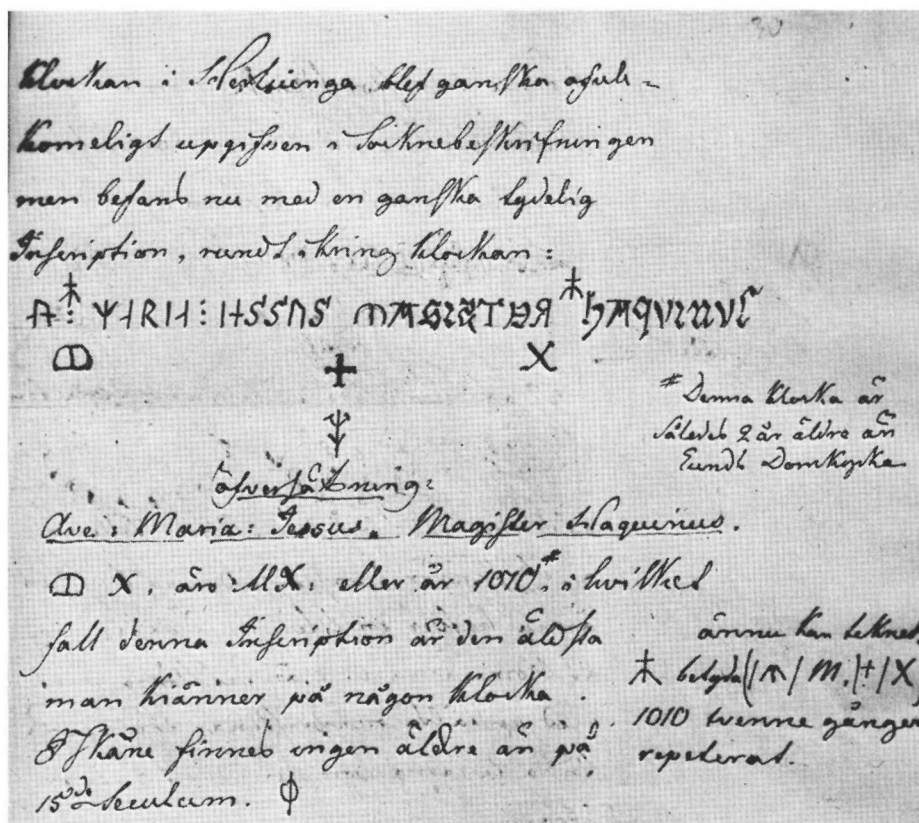 30
Klockan i blef ganska ofull-
komeligt upgifven i Soknebeskrifningen
men befans nu med en ganska tydelig
Inscription, rundt ikring Klockan:
# Denna klocka är
således 2 år äldre än
Lunds Domkyrka
öfversättning:
Ave: Maria: Jessus. Magister Haquinus.
ↀ X. äro MX: eller år 1010# i hvilket
fall denna Inscription är den äldsta
man känner på någon Klocka.
I Skåne finnes ingen äldre än på
15de Seculum. ϕ
ännu kan teknet
betyda (|M.|+|X
1010 tvenne gånger
repeterat.